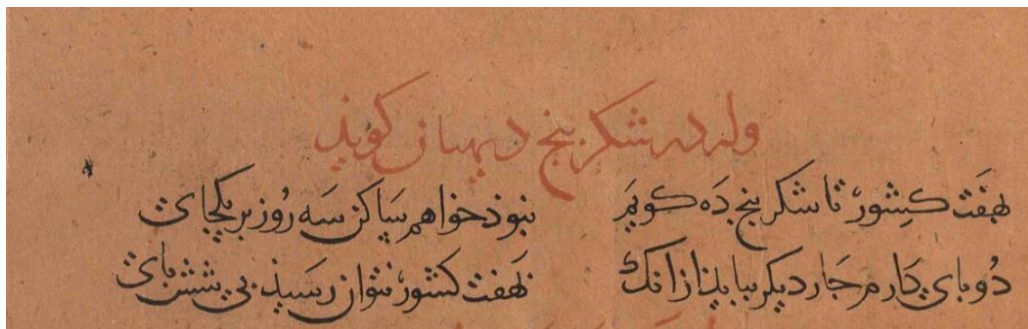 وله در شکر بنج دیهیان کوید
بهفت کشور تا شکر بنج ده کویم نبوذ خواهم ساکن سه روز بر یکجای
دو بای دارم جار دیکر ببایذ از انک بهفت کشور نتوان رسیذ بی شش بای